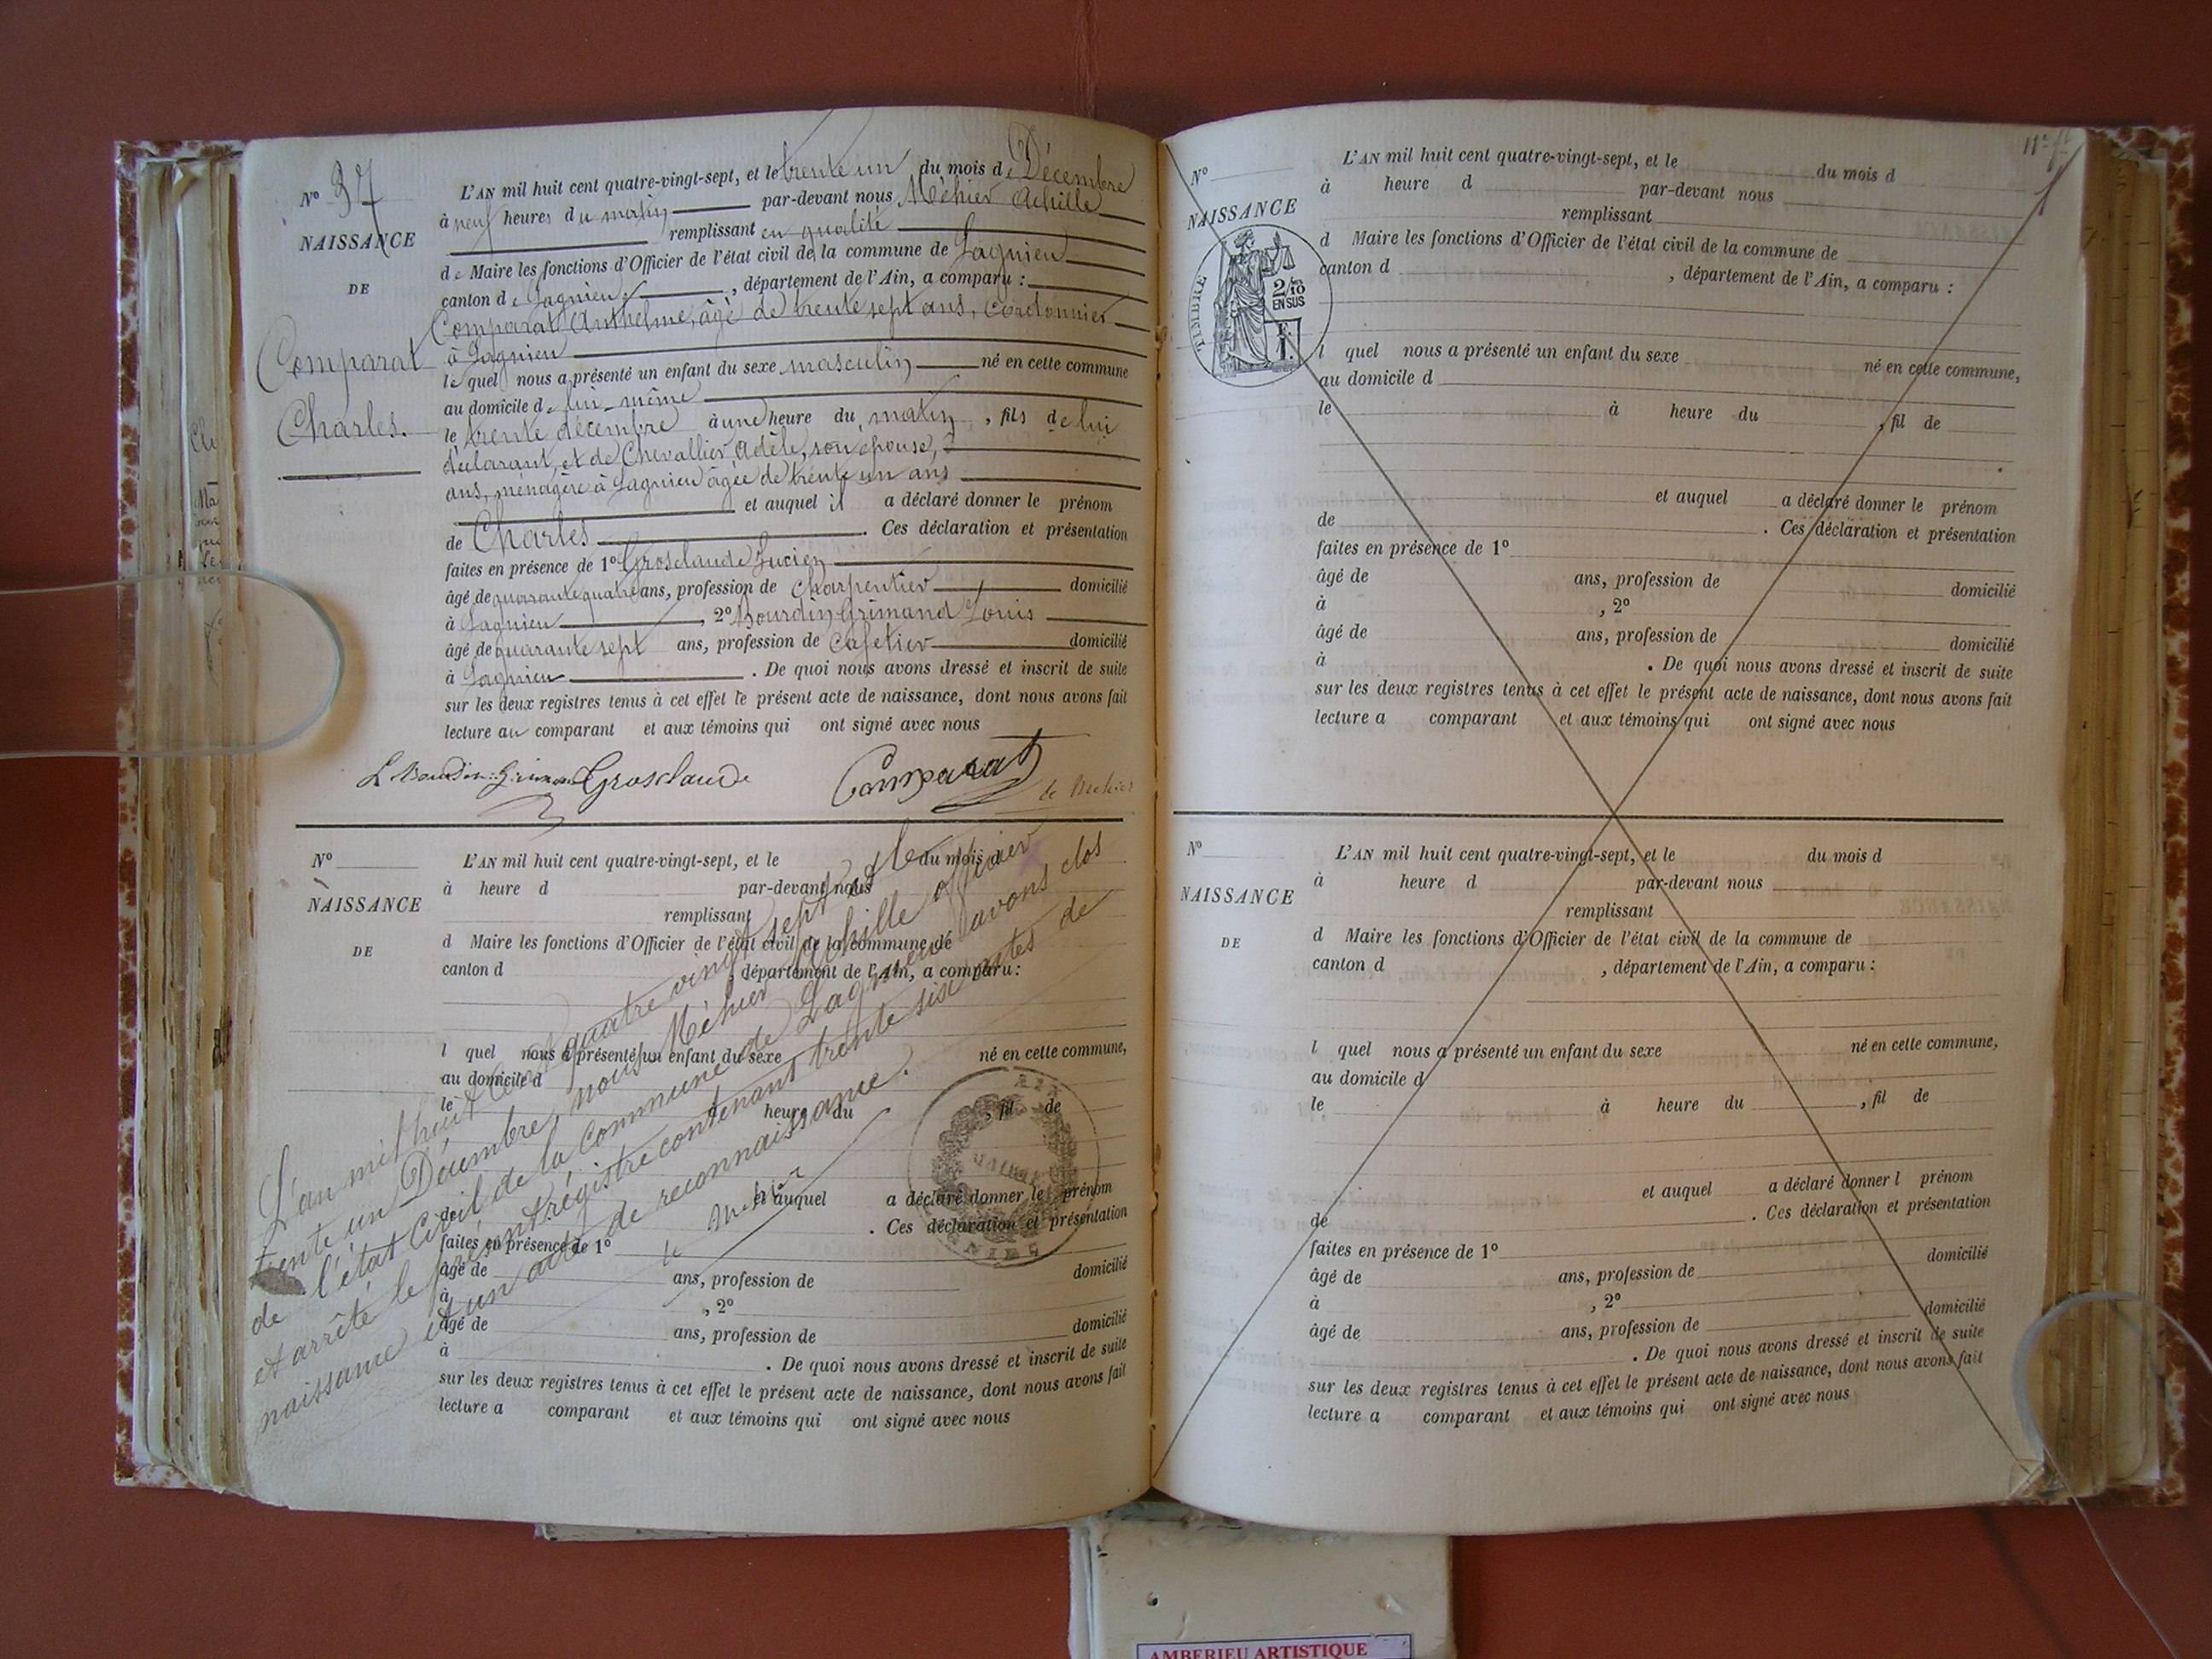 N° 37
NAISSANCE
DE
Comparat
Charles.
L'AN mil huit cent quatre-vingt-sept, et le trente un du mois de Décembre
à neuf heures du matin par-devant nous Méhier Achille
remplissant en qualité
de Maire les fonctions d'Officier de l'état civil de la commune de Lagnieu
canton de Lagnieu, département de l'Ain, a comparu :
Comparat Anthelme, âgé de trente sept ans, cordonnier
à Lagnieu
lequel nous a présenté un enfant du sexe masculin né en cette commune
au domicile de lui-même
le trente décembre à une heure du matin, fils de lui
déclarant, et de Chevallier Adèle, son épouse,
ans, ménagère à Lagnieu âgée de trente un ans
et auquel il a déclaré donner le prénom
de Charles. Ces déclaration et présentation
faites en présence de 1° Grosclaude Lucien
âgé de quarante quatre ans, profession de Charpentier domicilié
à Lagnieu, 2° Bourdin Grimand Louis
âgé de quarante sept ans, profession de cafetier domicilié
à Lagnieu. De quoi nous avons dressé et inscrit de suite
sur les deux registres tenus à cet effet le présent acte de naissance, dont nous avons fait
lecture au comparant et aux témoins qui ont signé avec nous
Grosclaude Comparat
N°
NAISSANCE
DE
L'AN mil huit cent quatre-vingt-sept, et le du mois d
à heure d par-devant nous
remplissant
d Maire les fonctions d'Officier de l'état civil de la commune de
canton d , département de l'Ain, a comparu :
l quel nous a présenté un enfant du sexe né en cette commune,
au domicile d
le à heure du , fil de
et auquel a déclaré donner le prénom
de . Ces déclaration et présentation
faites en présence de 1°
âgé de ans, profession de domicilié
à , 2°
âgé de ans, profession de domicilié
à . De quoi nous avons dressé et inscrit de suite
sur les deux registres tenus à cet effet le présent acte de naissance, dont nous avons fait
lecture a comparant et aux témoins qui ont signé avec nous
L'an mil huit cent quatre vingt sept et le
trente un Décembre, nous Méhier Achille officier
de l'état Civil de la commune de Lagnieu avons clos
et arrêté le présent régistre contenant trente six actes de
naissance et un acte de reconnaissance.
N°
NAISSANCE
TIMBRE
2/10
EN SUS
L'AN mil huit cent quatre-vingt-sept, et le du mois d
à heure d par-devant nous
remplissant
d Maire les fonctions d'Officier de l'état civil de la commune de
canton d , département de l'Ain, a comparu :
l quel nous a présenté un enfant du sexe né en cette commune,
au domicile d
le à heure du , fil de
et auquel a déclaré donner le prénom
de . Ces déclaration et présentation
faites en présence de 1°
âgé de ans, profession de domicilié
à , 2°
âgé de ans, profession de domicilié
à . De quoi nous avons dressé et inscrit de suite
sur les deux registres tenus à cet effet le présent acte de naissance, dont nous avons fait
lecture a comparant et aux témoins qui ont signé avec nous
N°
NAISSANCE
DE
L'AN mil huit cent quatre-vingt-sept, et le du mois d
à heure d par-devant nous
remplissant
d Maire les fonctions d'Officier de l'état civil de la commune de
canton d , département de l'Ain, a comparu :
l quel nous a présenté un enfant du sexe né en cette commune,
au domicile d
le à heure du , fil de
et auquel a déclaré donner l prénom
de . Ces déclaration et présentation
faites en présence de 1°
âgé de ans, profession de domicilié
à , 2°
âgé de ans, profession de domicilié
. De quoi nous avons dressé et inscrit de suite
sur les deux registres tenus à cet effet le présent acte de naissance, dont nous avons fait
lecture a comparant et aux témoins qui ont signé avec nous
AMBERIEU ARTISTIQUE